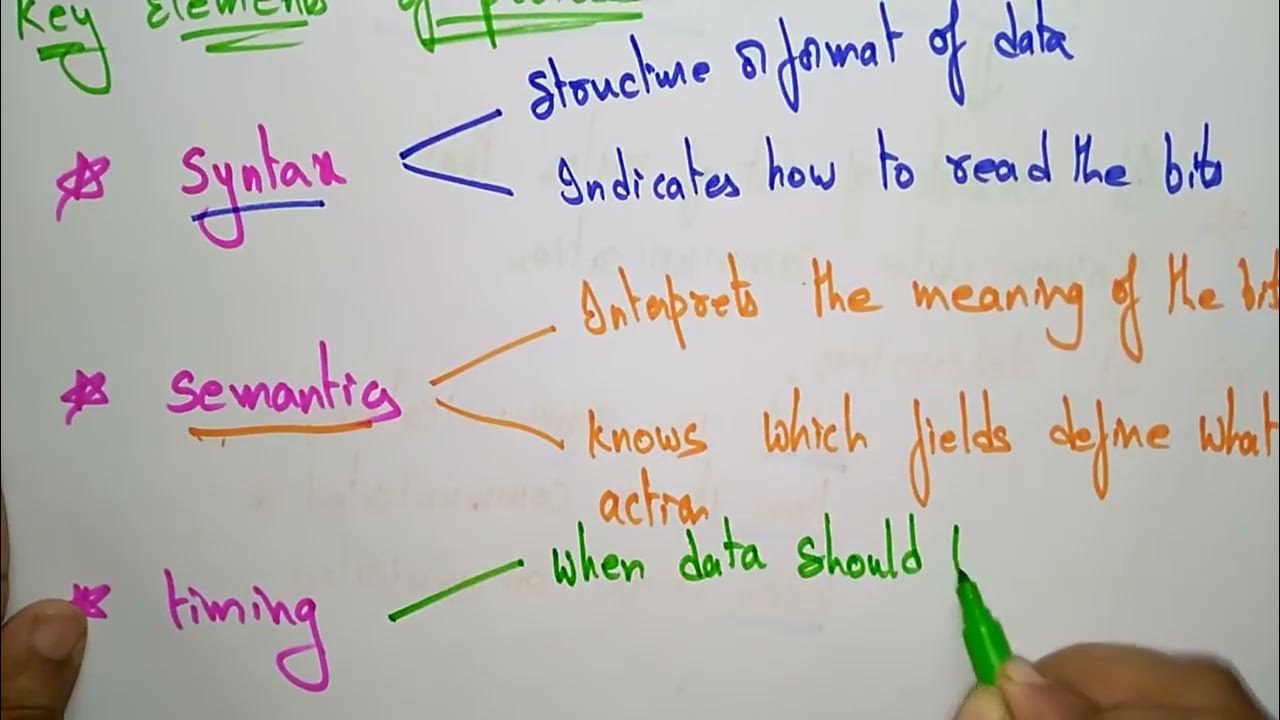 Key Elements of
Structure or format of data
Syntax
Indicates how to read the bits
Interprets the meaning of the bits
Semantics
knows which fields define what
action
when data should
timing